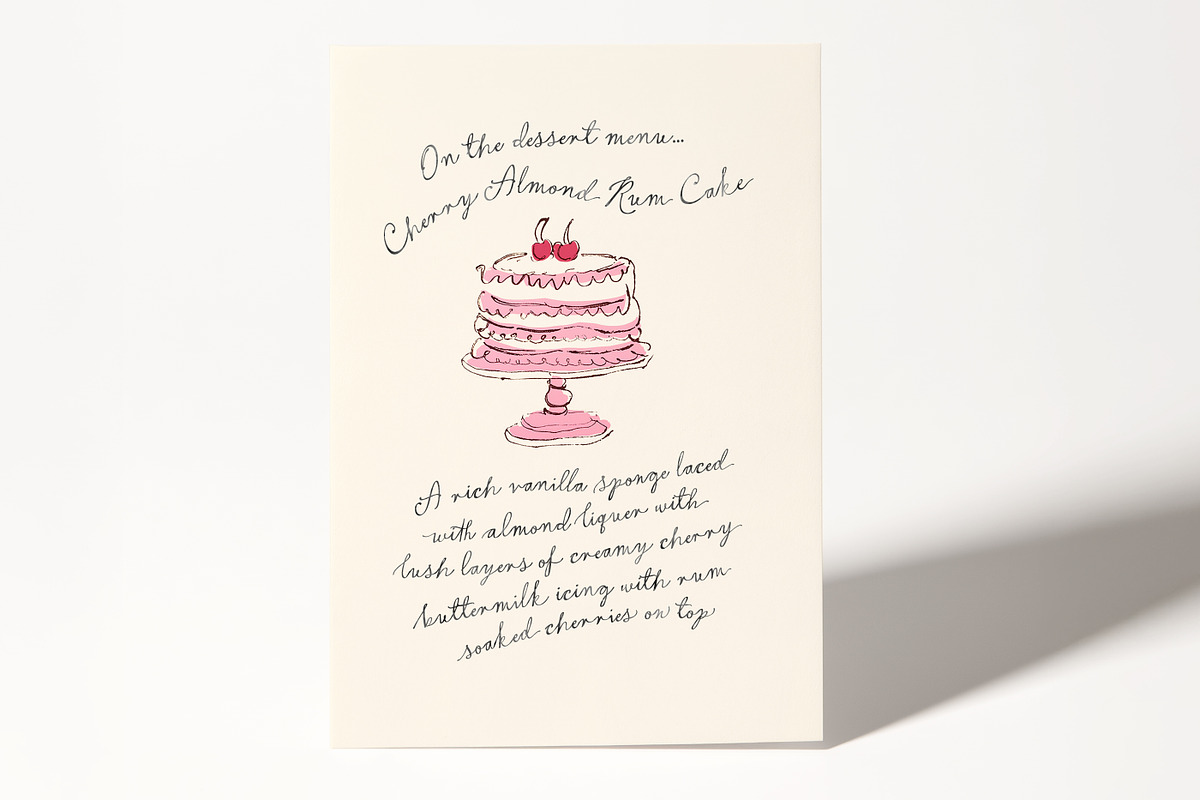 On the dessert menu...
Cherry Almond Rum Cake
A rich vanilla sponge laced
with almond liquer with
lush layers of creamy cherry
buttermilk icing with rum
soaked cherries on top